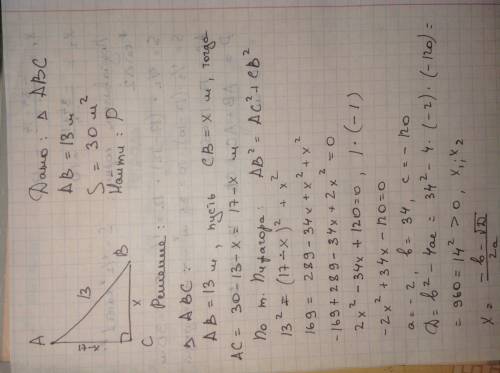 A
13
17-x
B
x
C
Дано: Δ ABC
AB = 13 м
S = 30 м²
Найти: P
Решение:
Δ ABC:
AB = 13 м, пусть CB = x м, тогда
AC = 30 - 13 - x = 17 - x м
По т. Пифагора: AB² = AC² + CB²
13² = (17 - x)² + x²
169 = 289 - 34x + x² + x²
-169 + 289 - 34x + 2x² = 0
2x² - 34x + 120 = 0, | · (-1)
-2x² + 34x - 120 = 0
a = -2, b = 34, c = -120
D = b² - 4ac = 34² - 4 · (-2) · (-120) =
= 960 = 14² > 0, x₁; x₂
x = b - √D / 2a